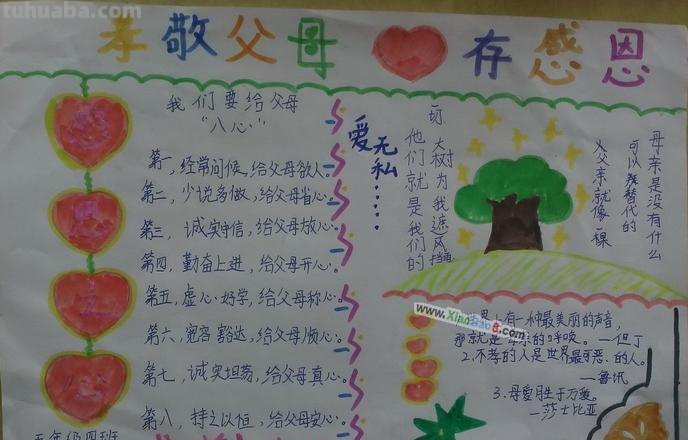 tuhuaba.com
孝敬父母 存感恩
我们要给父母
"八心"
第一，经常问候，给父母欢心。
第二，少说多做，给父母省心。
第三，诚实守信，给父母放心。
第四，勤奋上进，给父母开心。
第五，虚心好学，给父母称心。
第六，宽容豁达，给父母顺心。
第七，诚实坦荡，给父母真心。
第八，持之以恒，给父母安心。
五年级四班
爱无私……
母亲是没有什么
可以代替的
父亲就像一棵
大树为我遮风挡
一切
他们就是我们的
世界上有一种最美丽的声音，
那就是母亲的呼唤。—但丁
2.不孝的人是世界最可恶的人。
—鲁讯
3.母爱胜于万爱。
—莎士比亚
www.Xino8ao8.com